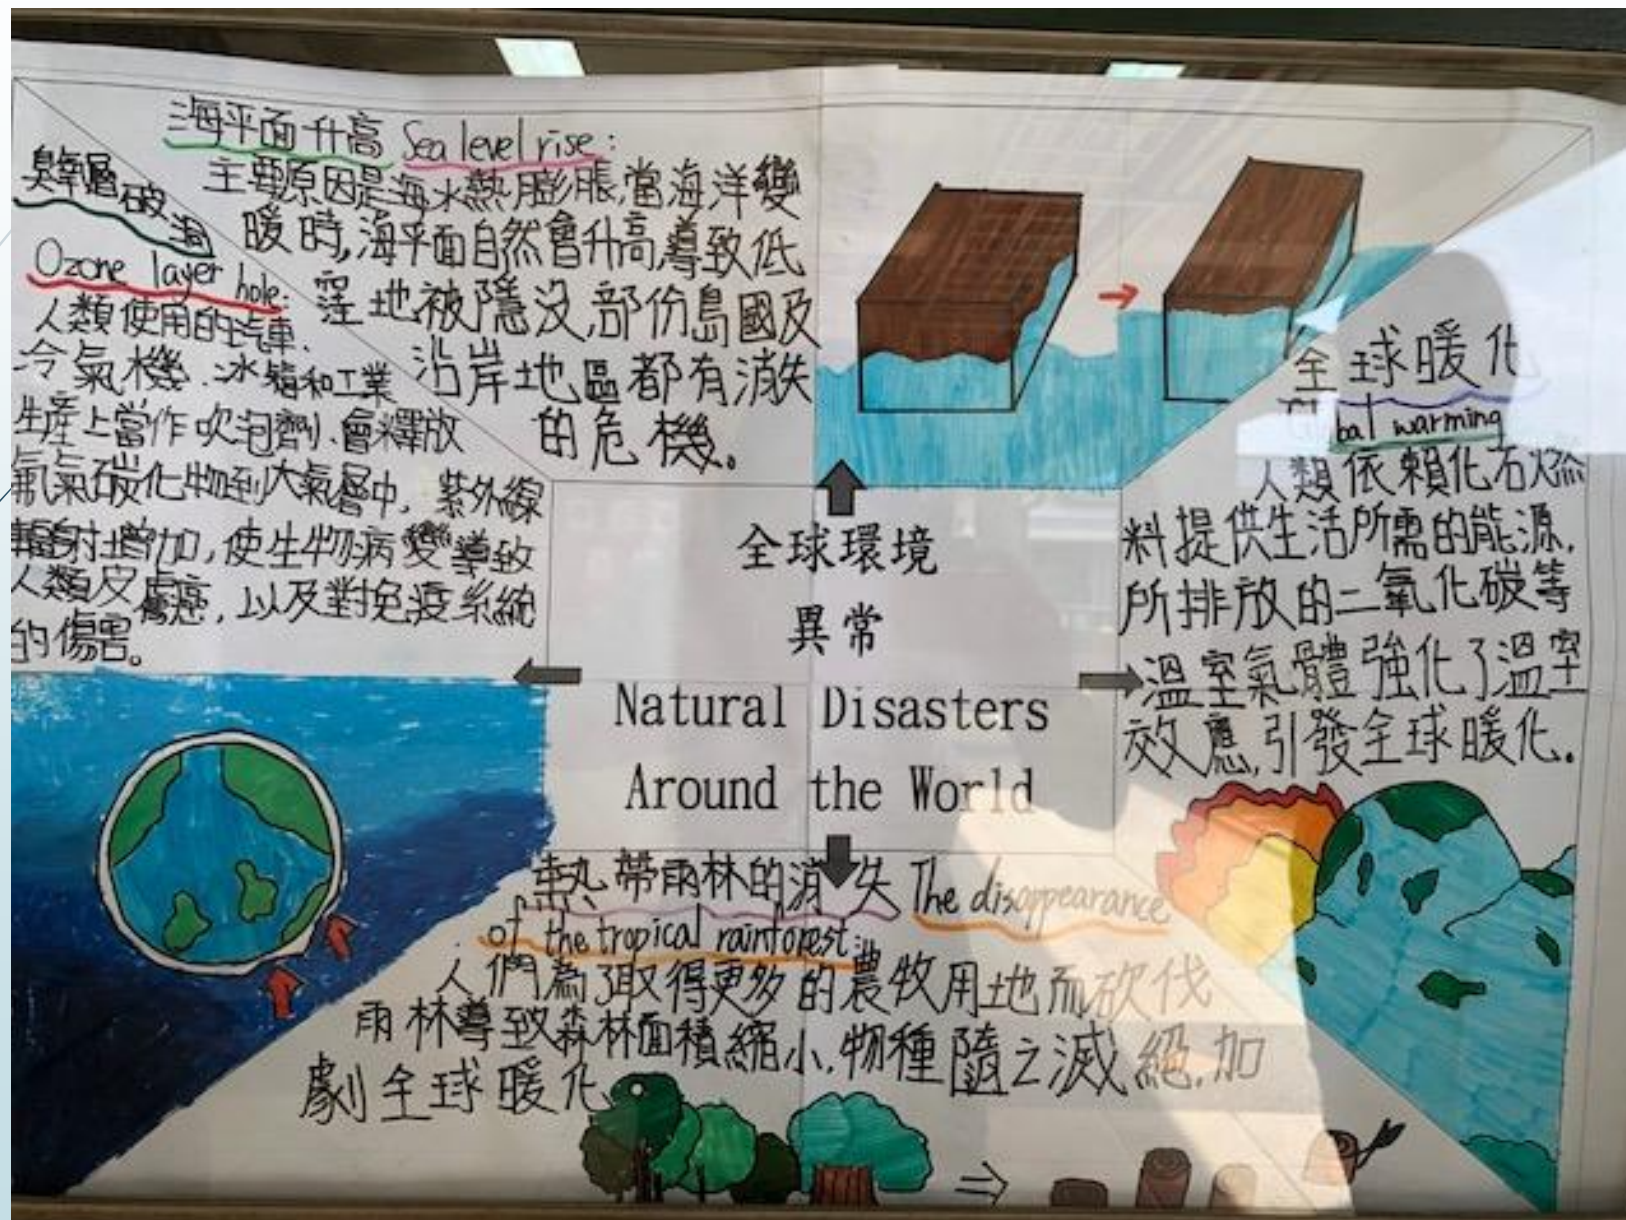 海平面升高 Sea level rise:
主要原因是海水熱膨脹,當海洋變
暖時,海平面自然會升高,導致低
窪地被隱沒,部份島國及
沿岸地區都有消失
的危機。
臭氧層破洞
Ozone layer hole:
人類使用的汽車.
冷氣機.冰箱和工業
生產上當作吹泡劑,會釋放
氟氯碳化物到大氣層中,紫外線
輻射增加,使生物病變導致
人類皮膚癌,以及對免疫系統
的傷害。
全球環境
異常
Natural Disasters
Around the World
全球暖化
bal warming
人類依賴化石燃
料提供生活所需的能源,
所排放的二氧化碳等
溫室氣體強化了溫室
效應,引發全球暖化.
熱帶雨林的消失 The disappearance
of the tropical rainforest:
人們為了取得更多的農牧用地而砍伐
雨林導致森林面積縮小,物種隨之滅絕,加
劇全球暖化